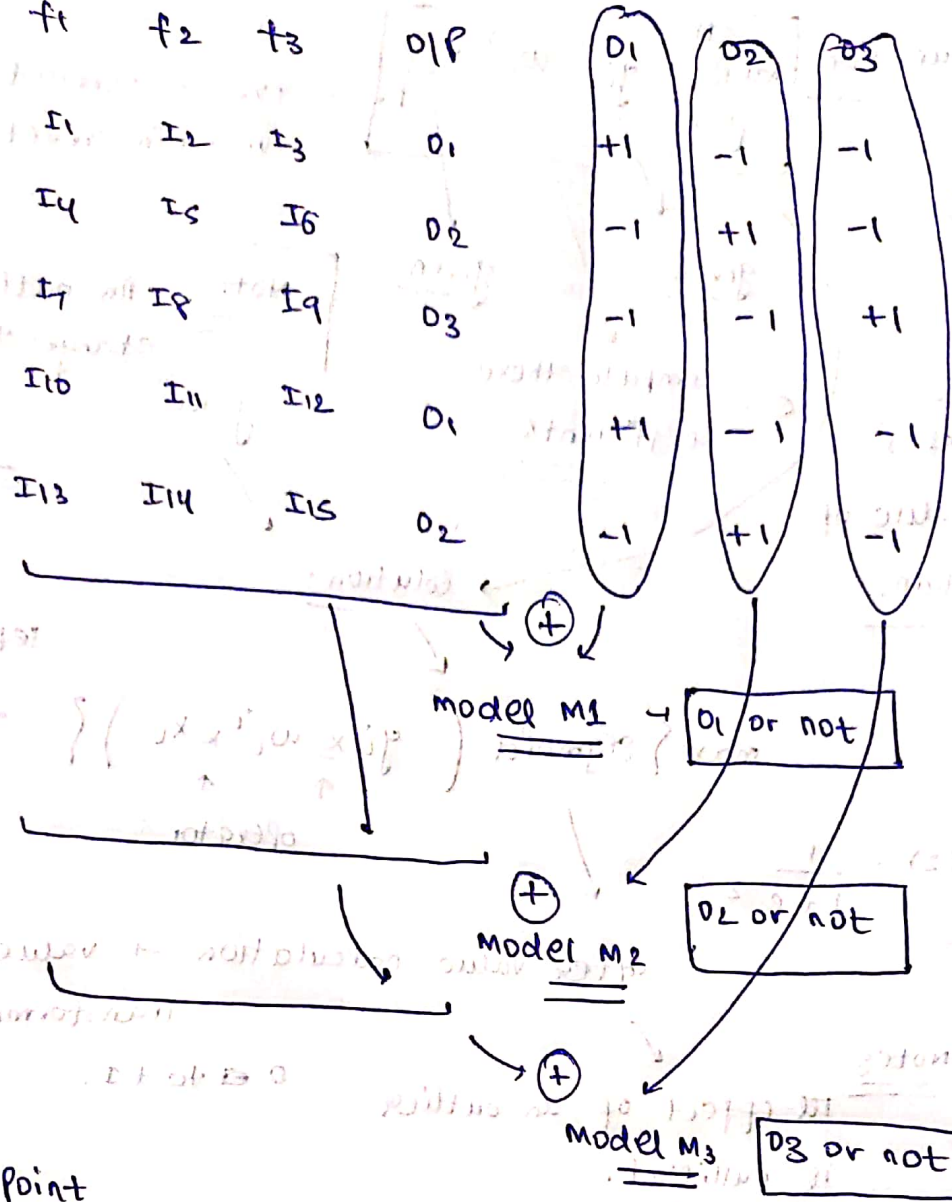 f1 f2 f3 O/P O1 O2 O3
I1 I2 I3 O1 +1 -1 -1
I4 I5 I6 O2 -1 +1 -1
I7 I8 I9 O3 -1 -1 +1
I10 I11 I12 O1 +1 -1 -1
I13 I14 I15 O2 -1 +1 -1
+
Model M1 → O1 or not
+
Model M2 O2 or not
+
Model M3 O3 or not
Point